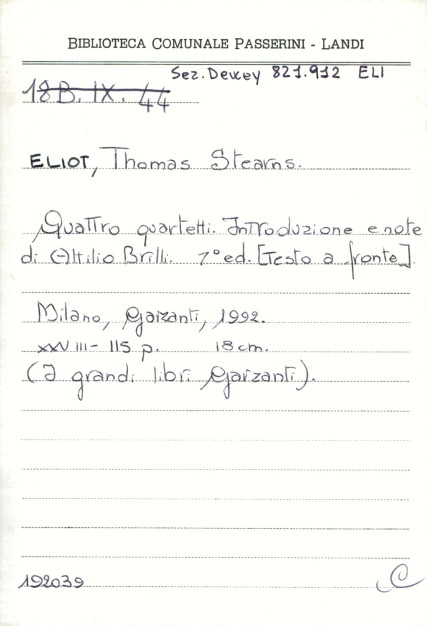 BIBLIOTECA COMUNALE PASSERINI - LANDI
Sez. Dewey 821.912 ELI
18B. IX. 44
ELIOT, Thomas Stearns.
Quattro quartetti. Introduzione e note
di Attilio Brilli. 1° ed. [Testo a fronte].
Milano, Garzanti, 1992.
XXVIII - 115 p. 18 cm.
(I grandi libri Garzanti).
192039